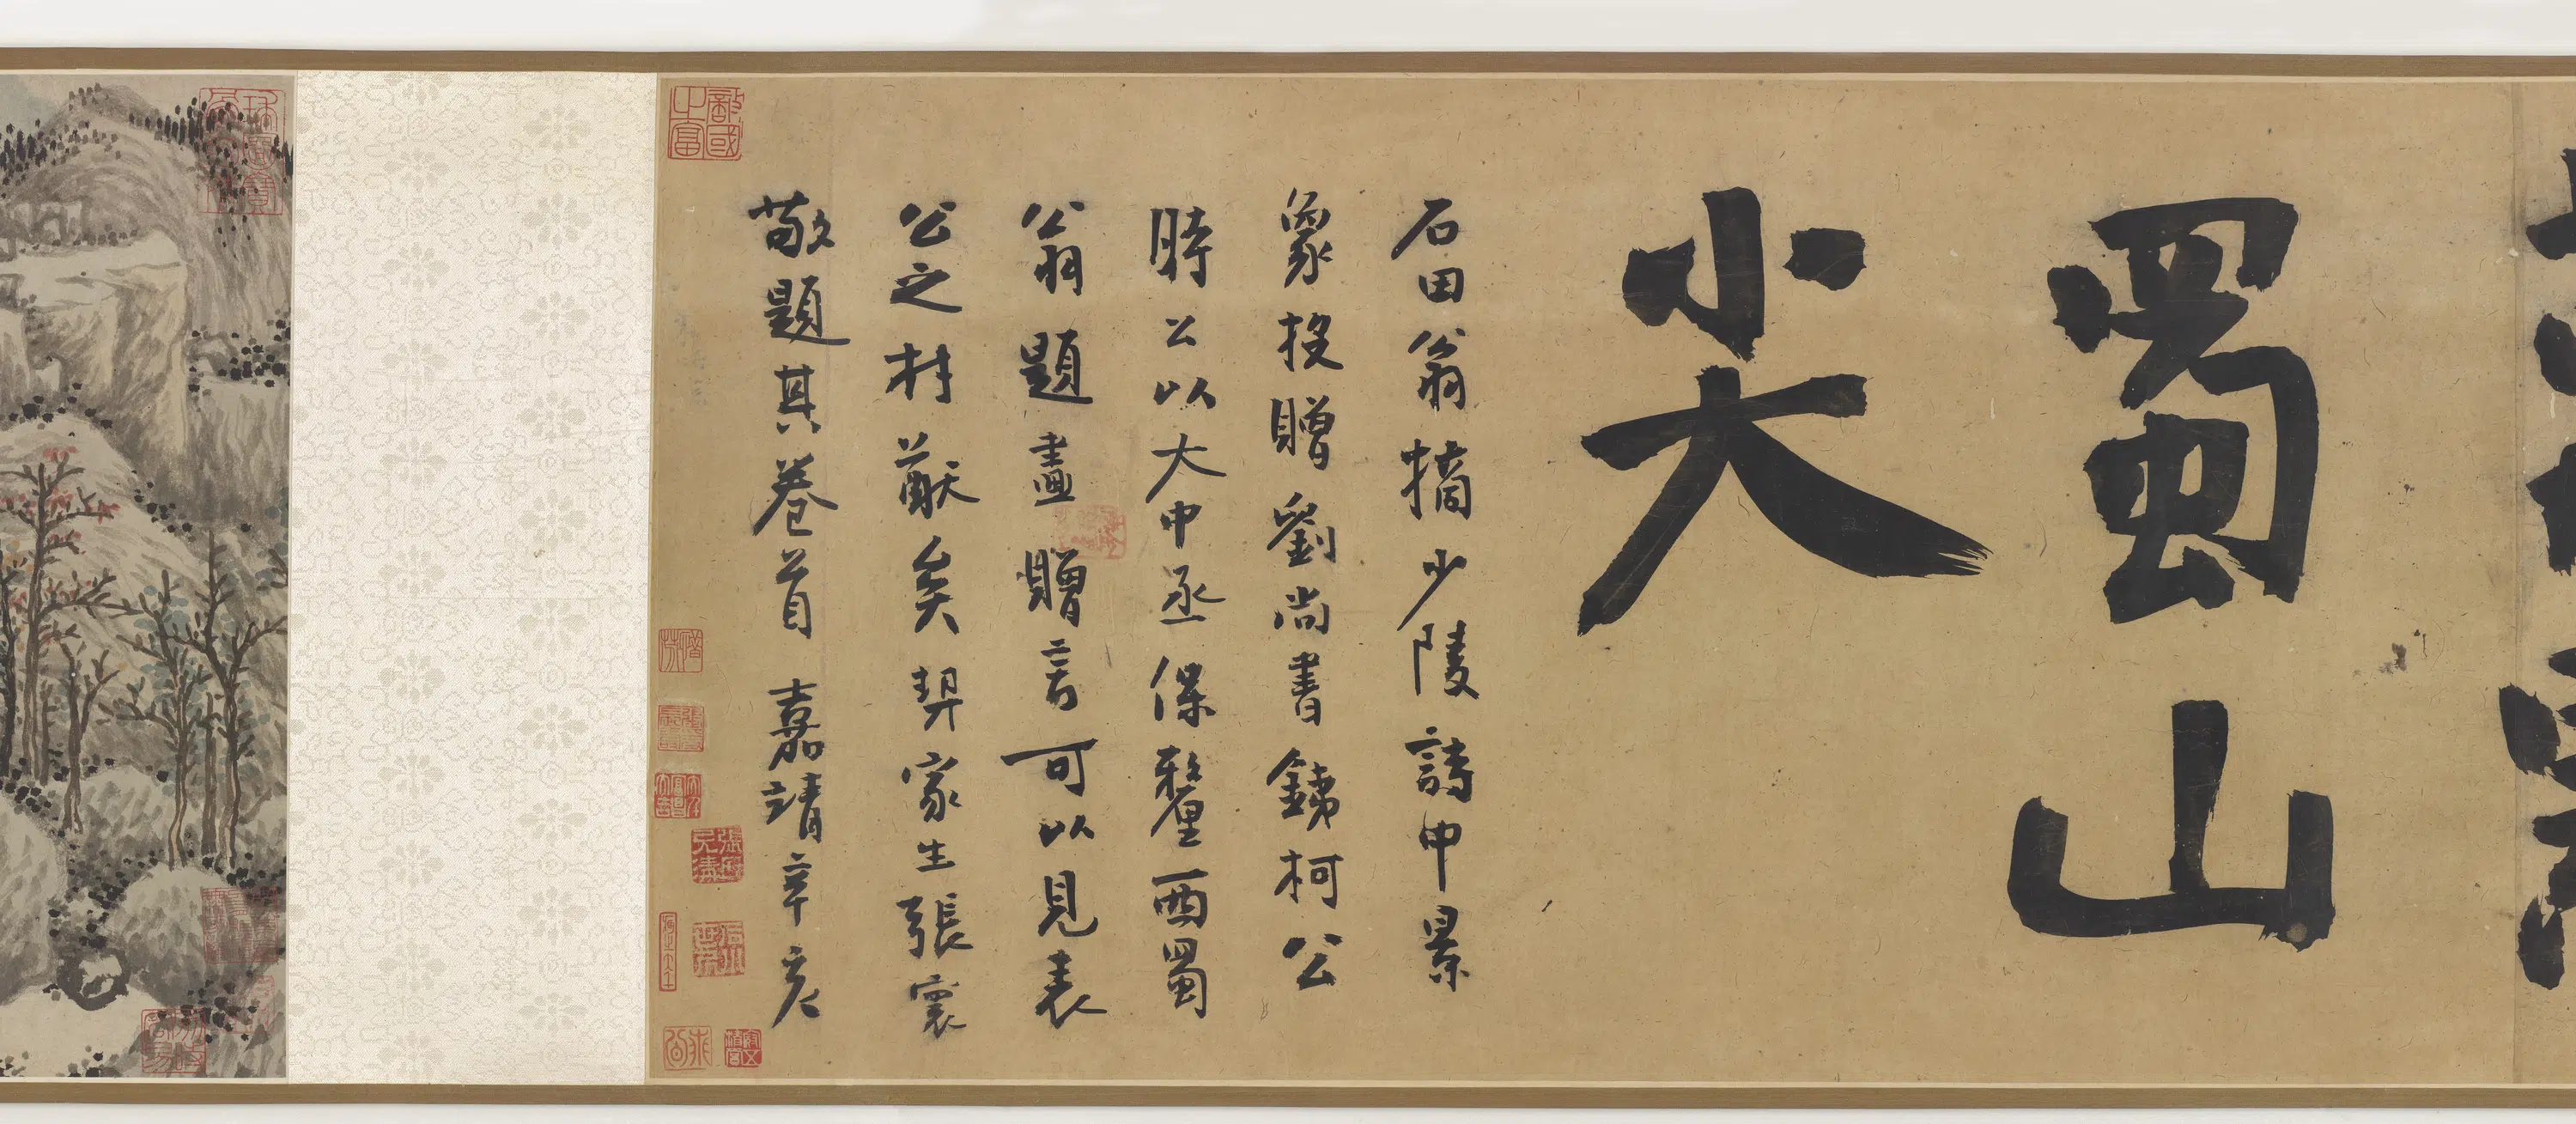 蜀山
尖
石田翁摘少陵詩中景
象投贈劉尚書鐵柯公
時公以大中丞保釐西蜀
翁題畫贈言可以見表
公之材猷矣契家生張寰
敬題其卷首 嘉靖辛亥